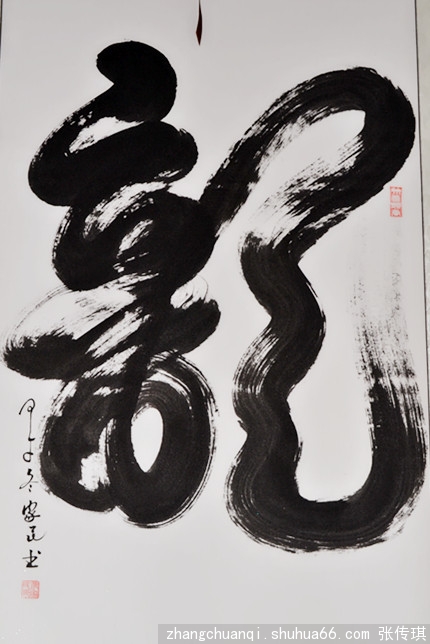 龍
甲午冬家民书
zhangchuanqi.shuhua66.com 张传琪